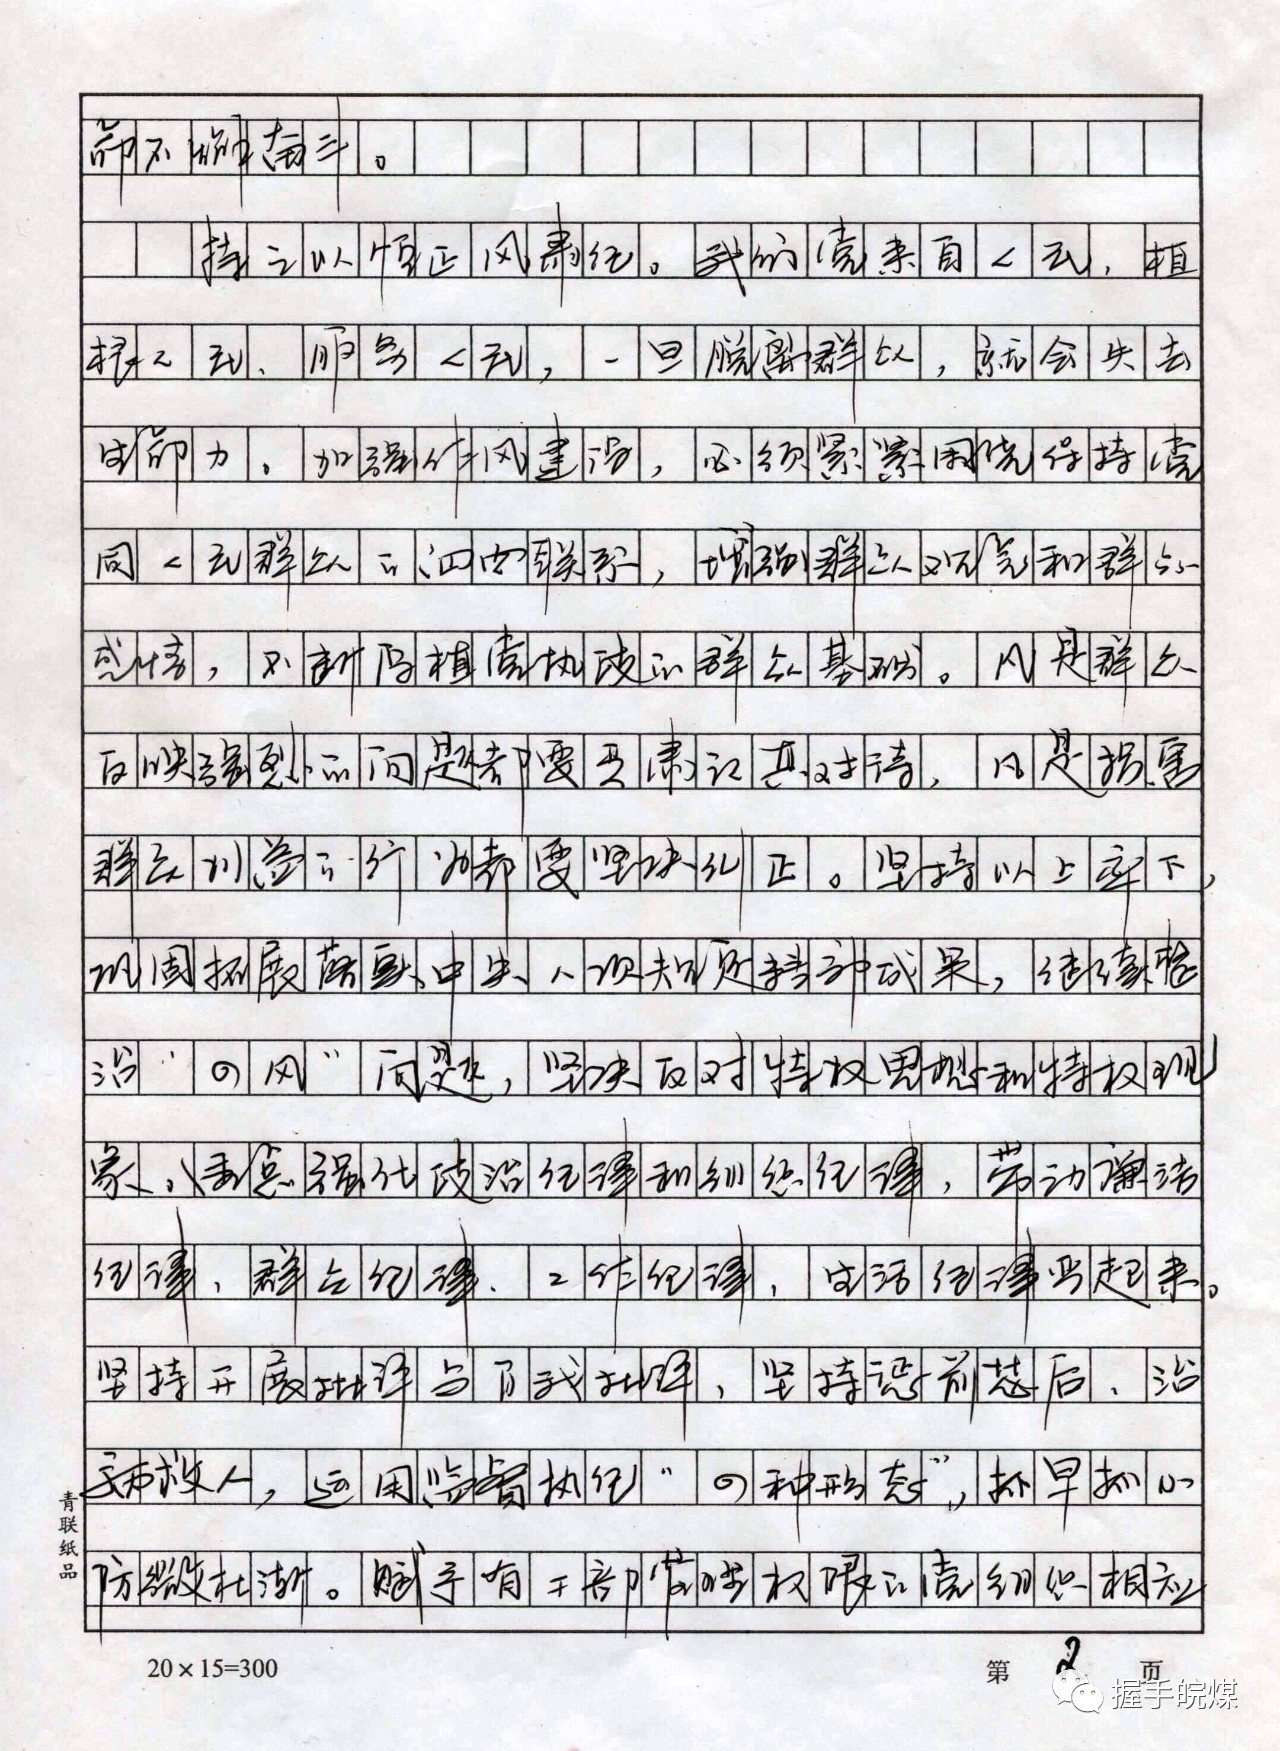 命不懈奋斗。
持之以恒正风肃纪。我们党来自人民，植
根人民、服务人民，一旦脱离群众，就会失去
生命力。加强作风建设，必须紧紧围绕保持党
同人民群众的血肉联系，增强群众观念和群众
感情，不断厚植党执政的群众基础。凡是群众
反映强烈的问题都要严肃认真对待，凡是损害
群众利益的行为都要坚决纠正。坚持以上率下，
巩固拓展落实中央八项规定精神成果，继续整
治“四风”问题，坚决反对特权思想和特权现
象。重点强化政治纪律和组织纪律，带动廉洁
纪律、群众纪律、工作纪律、生活纪律严起来。
坚持开展批评与自我批评，坚持惩前毖后、治
病救人，运用监督执纪“四种形态”，抓早抓小
防微杜渐。赋予有干部管理权限的党组织相应
青联纸品
20×15=300
第 2 页
握手皖煤